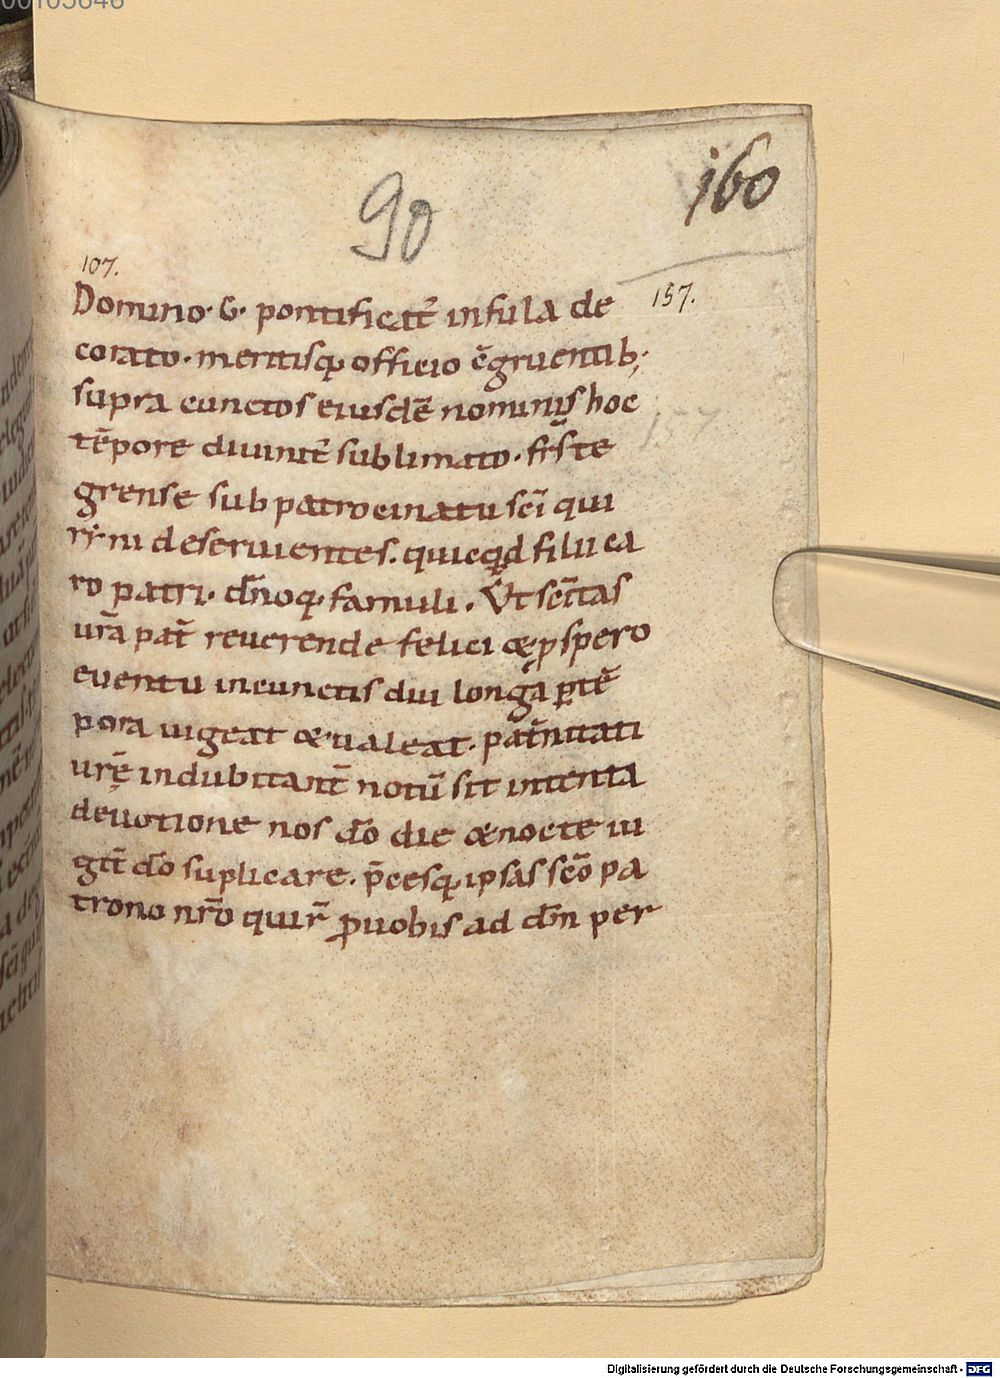 160
90
107.
Domino · G · pontificat̄ infula de
corato · meritisq; officio c̄gruentib;
supra cunctos eiusdē nominis hoc
tēpore diuinit̄ sublimato · fr̄s te
grense sub patrocinatu sc̄i qui
rini deseruientes. quicq̨d filii ca
ro patri · dn̄oq; famuli. Vt sc̄itas
ur̄a pat̄ reuerende felici & ꝓspero
euentu incunctis diu longa ꝑ tē
pora uigeat & ualeat · pat̄nitati
urę̄ indubitant̄ notū sit intenta
deuotione nos dō die & nocte iu
git̄ dō suplicare. p̄cesq; ipsas sc̄o pa
trono nr̄o quir̄ ꝓ uobis ad dn̄m per
157.
157
Digitalisierung gefördert durch die Deutsche Forschungsgemeinschaft - DFG